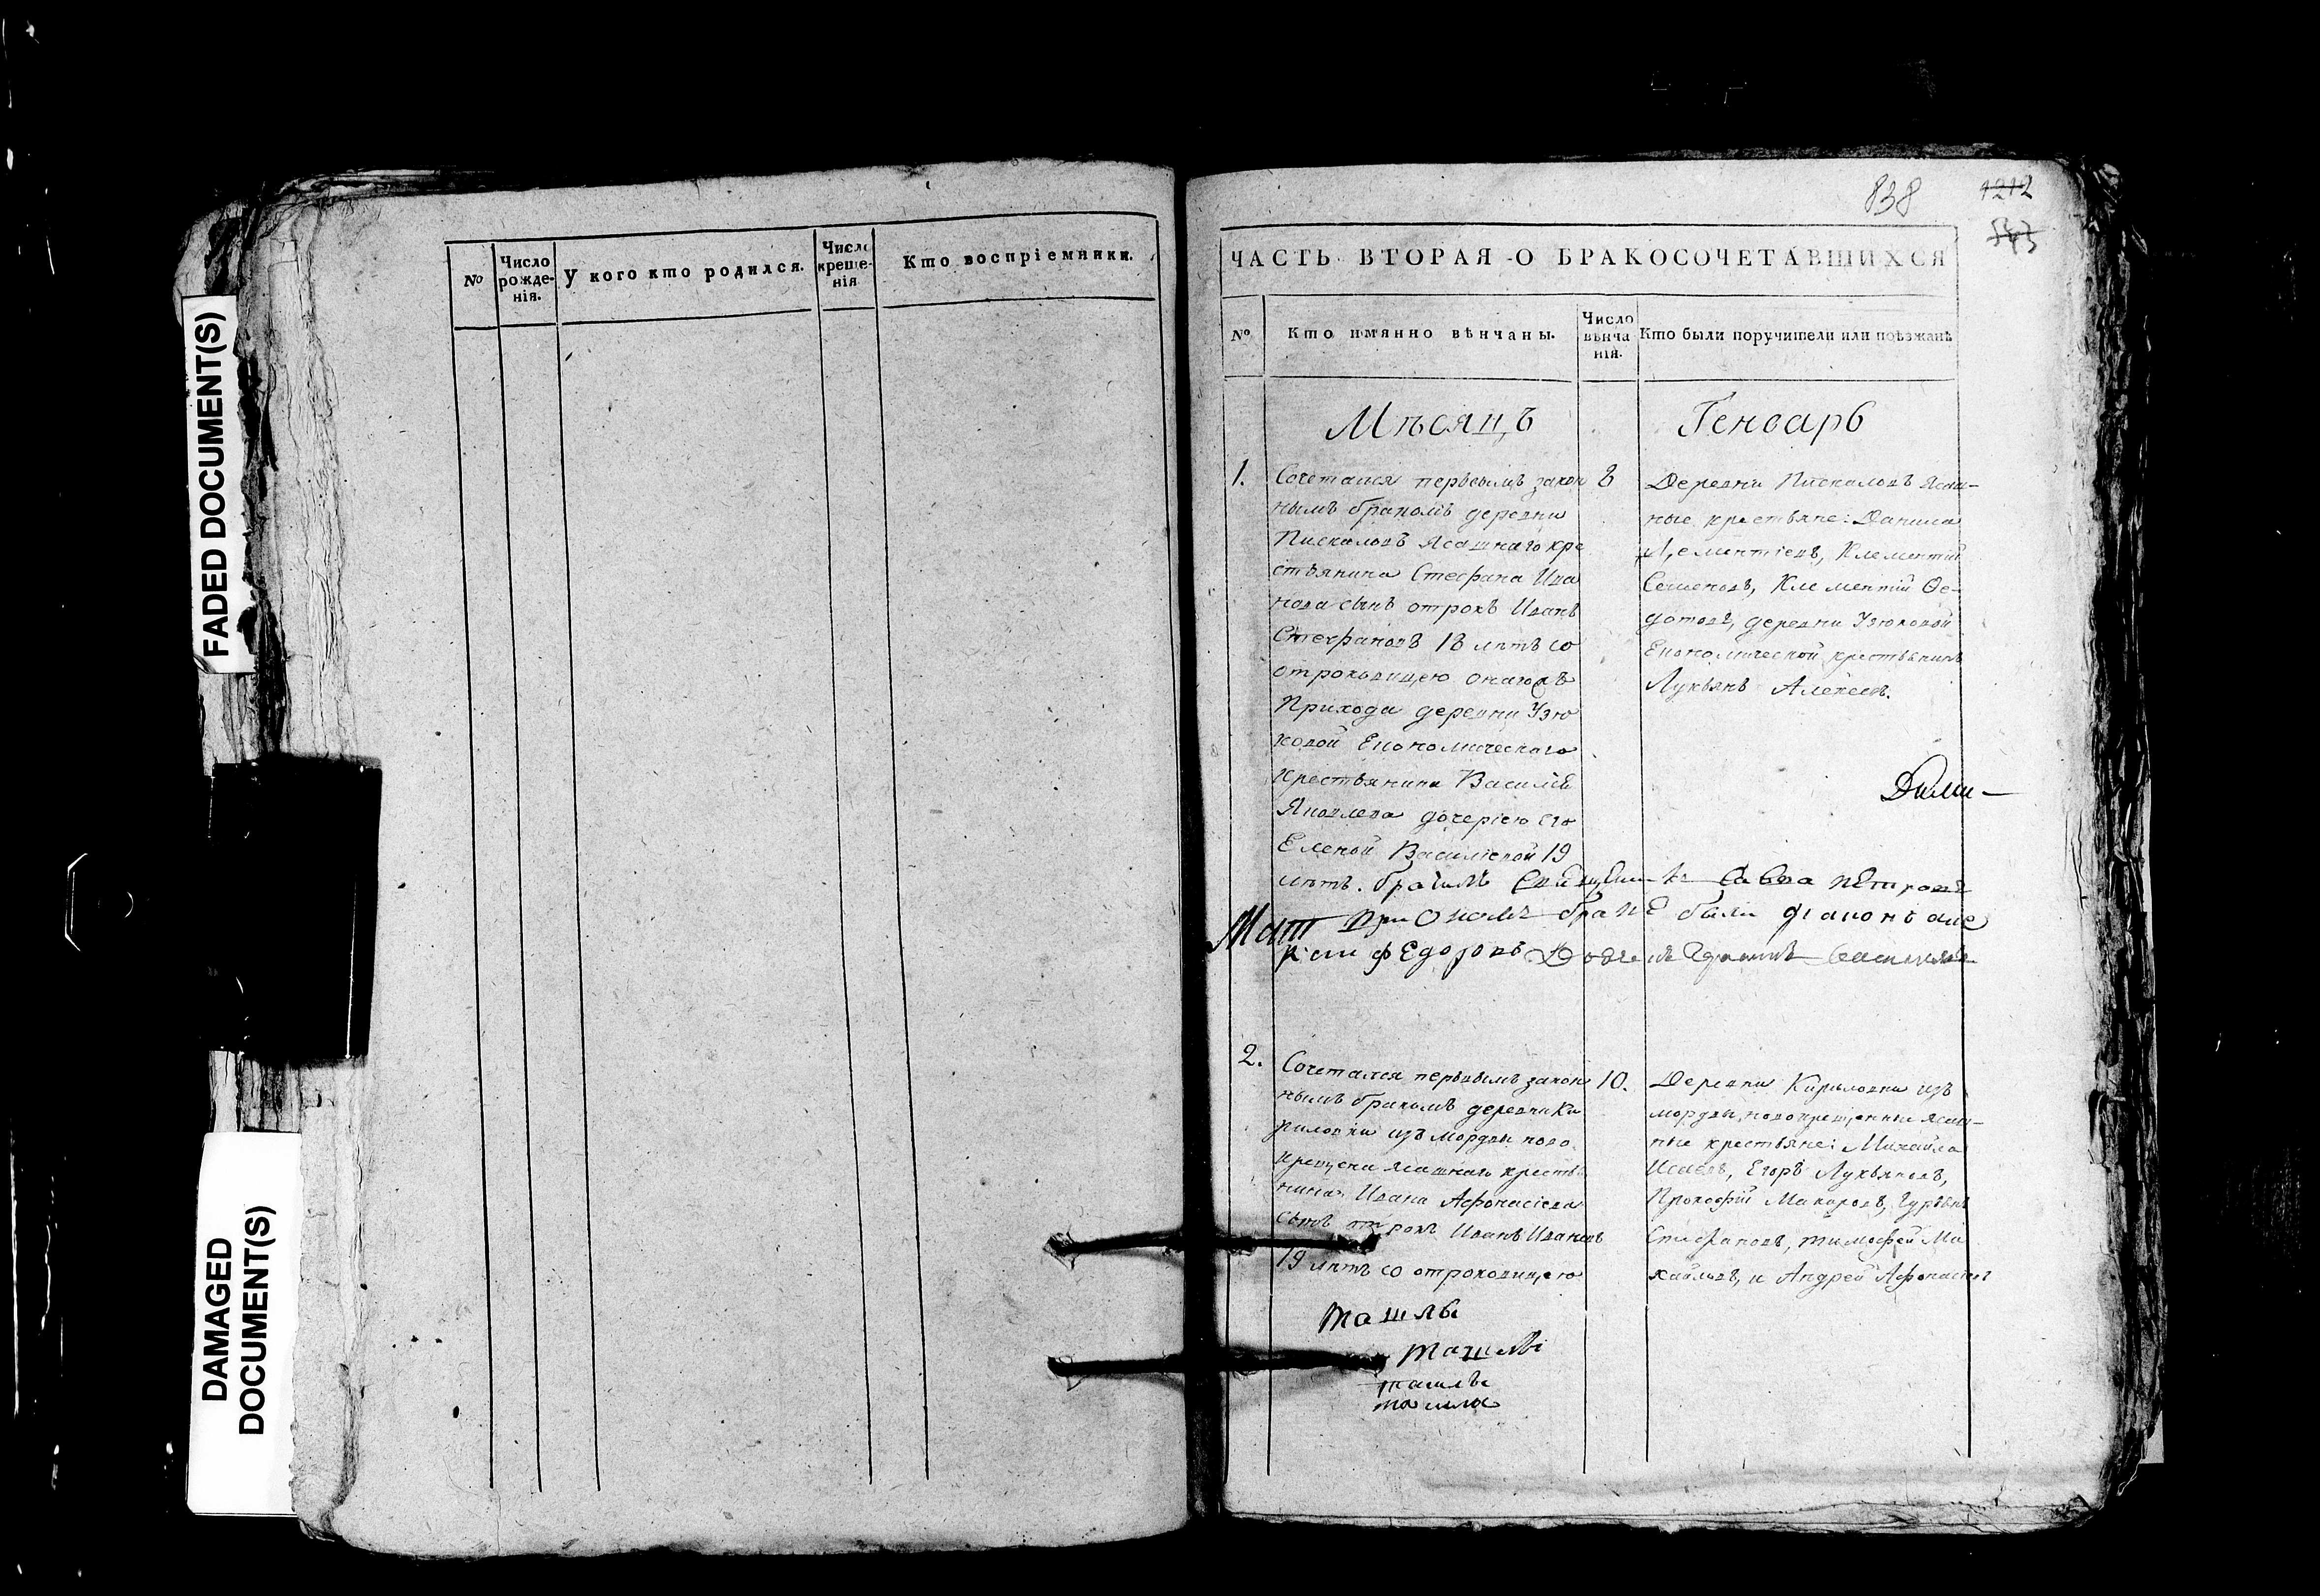 FADED DOCUMENT(S)
DAMAGED
DOCUMENT(S)
№
Число
рожде-
нія.
У кого кто родился.
Число
креще-
нія
Кто воспріемники.
838
1212
543
ЧАСТЬ ВТОРАЯ О БРАКОСОЧЕТАВШИХСЯ
№
Кто имянно вѣнчаны.
Число
вѣнча
нія.
Кто были поручители или поѣзжанѣ
Мѣсяцъ
Генварь
1.
Сочетался первымъ закон
нымъ бракомъ деревни
Пискаловъ ясашнаго кре
стьянина Стефана Ива
нова сынъ отрокъ Иванъ
Стефановъ 18 лѣтъ со
отроковицею онагожъ
Прихода деревни Узю
ковой Економическаго
крестьянина Василья
Яковлева дочерію его
Еленой Васильевой 19
лѣтъ.
8
Деревни Пискаловъ Ясаш-
ные крестьяне: Данила
Дементіевъ, Клементій
Семеновъ, Клементій Ѳе-
дотовъ, деревни Узюковой
Економической крестьянинъ
Лукьянъ Алексѣевъ.
Дими-
бракомъ Савва Петровъ
при ономъ бракѣ были діаконъ але
ксей федоровъ
2.
Сочетался первымъ закон
нымъ бракомъ деревни Ки
риловки изъ мордвы ново
крещена ясашнаго крестья
нина Ивана Афонасіева
сынъ отрокъ Иванъ Ивановъ
19 лѣтъ со отроковицею
10.
Деревни Кириловки изъ
мордвы новокрещенные ясаш-
ные крестьяне: Михайла
Исаевъ, Егоръ Лукьяновъ,
Прокофій Макаровъ, Гурьянъ
Стефановъ, тимофей Ми
хайловъ, и Андрей Афонасіевъ
ташлы
ташлы
ташлы
ташла